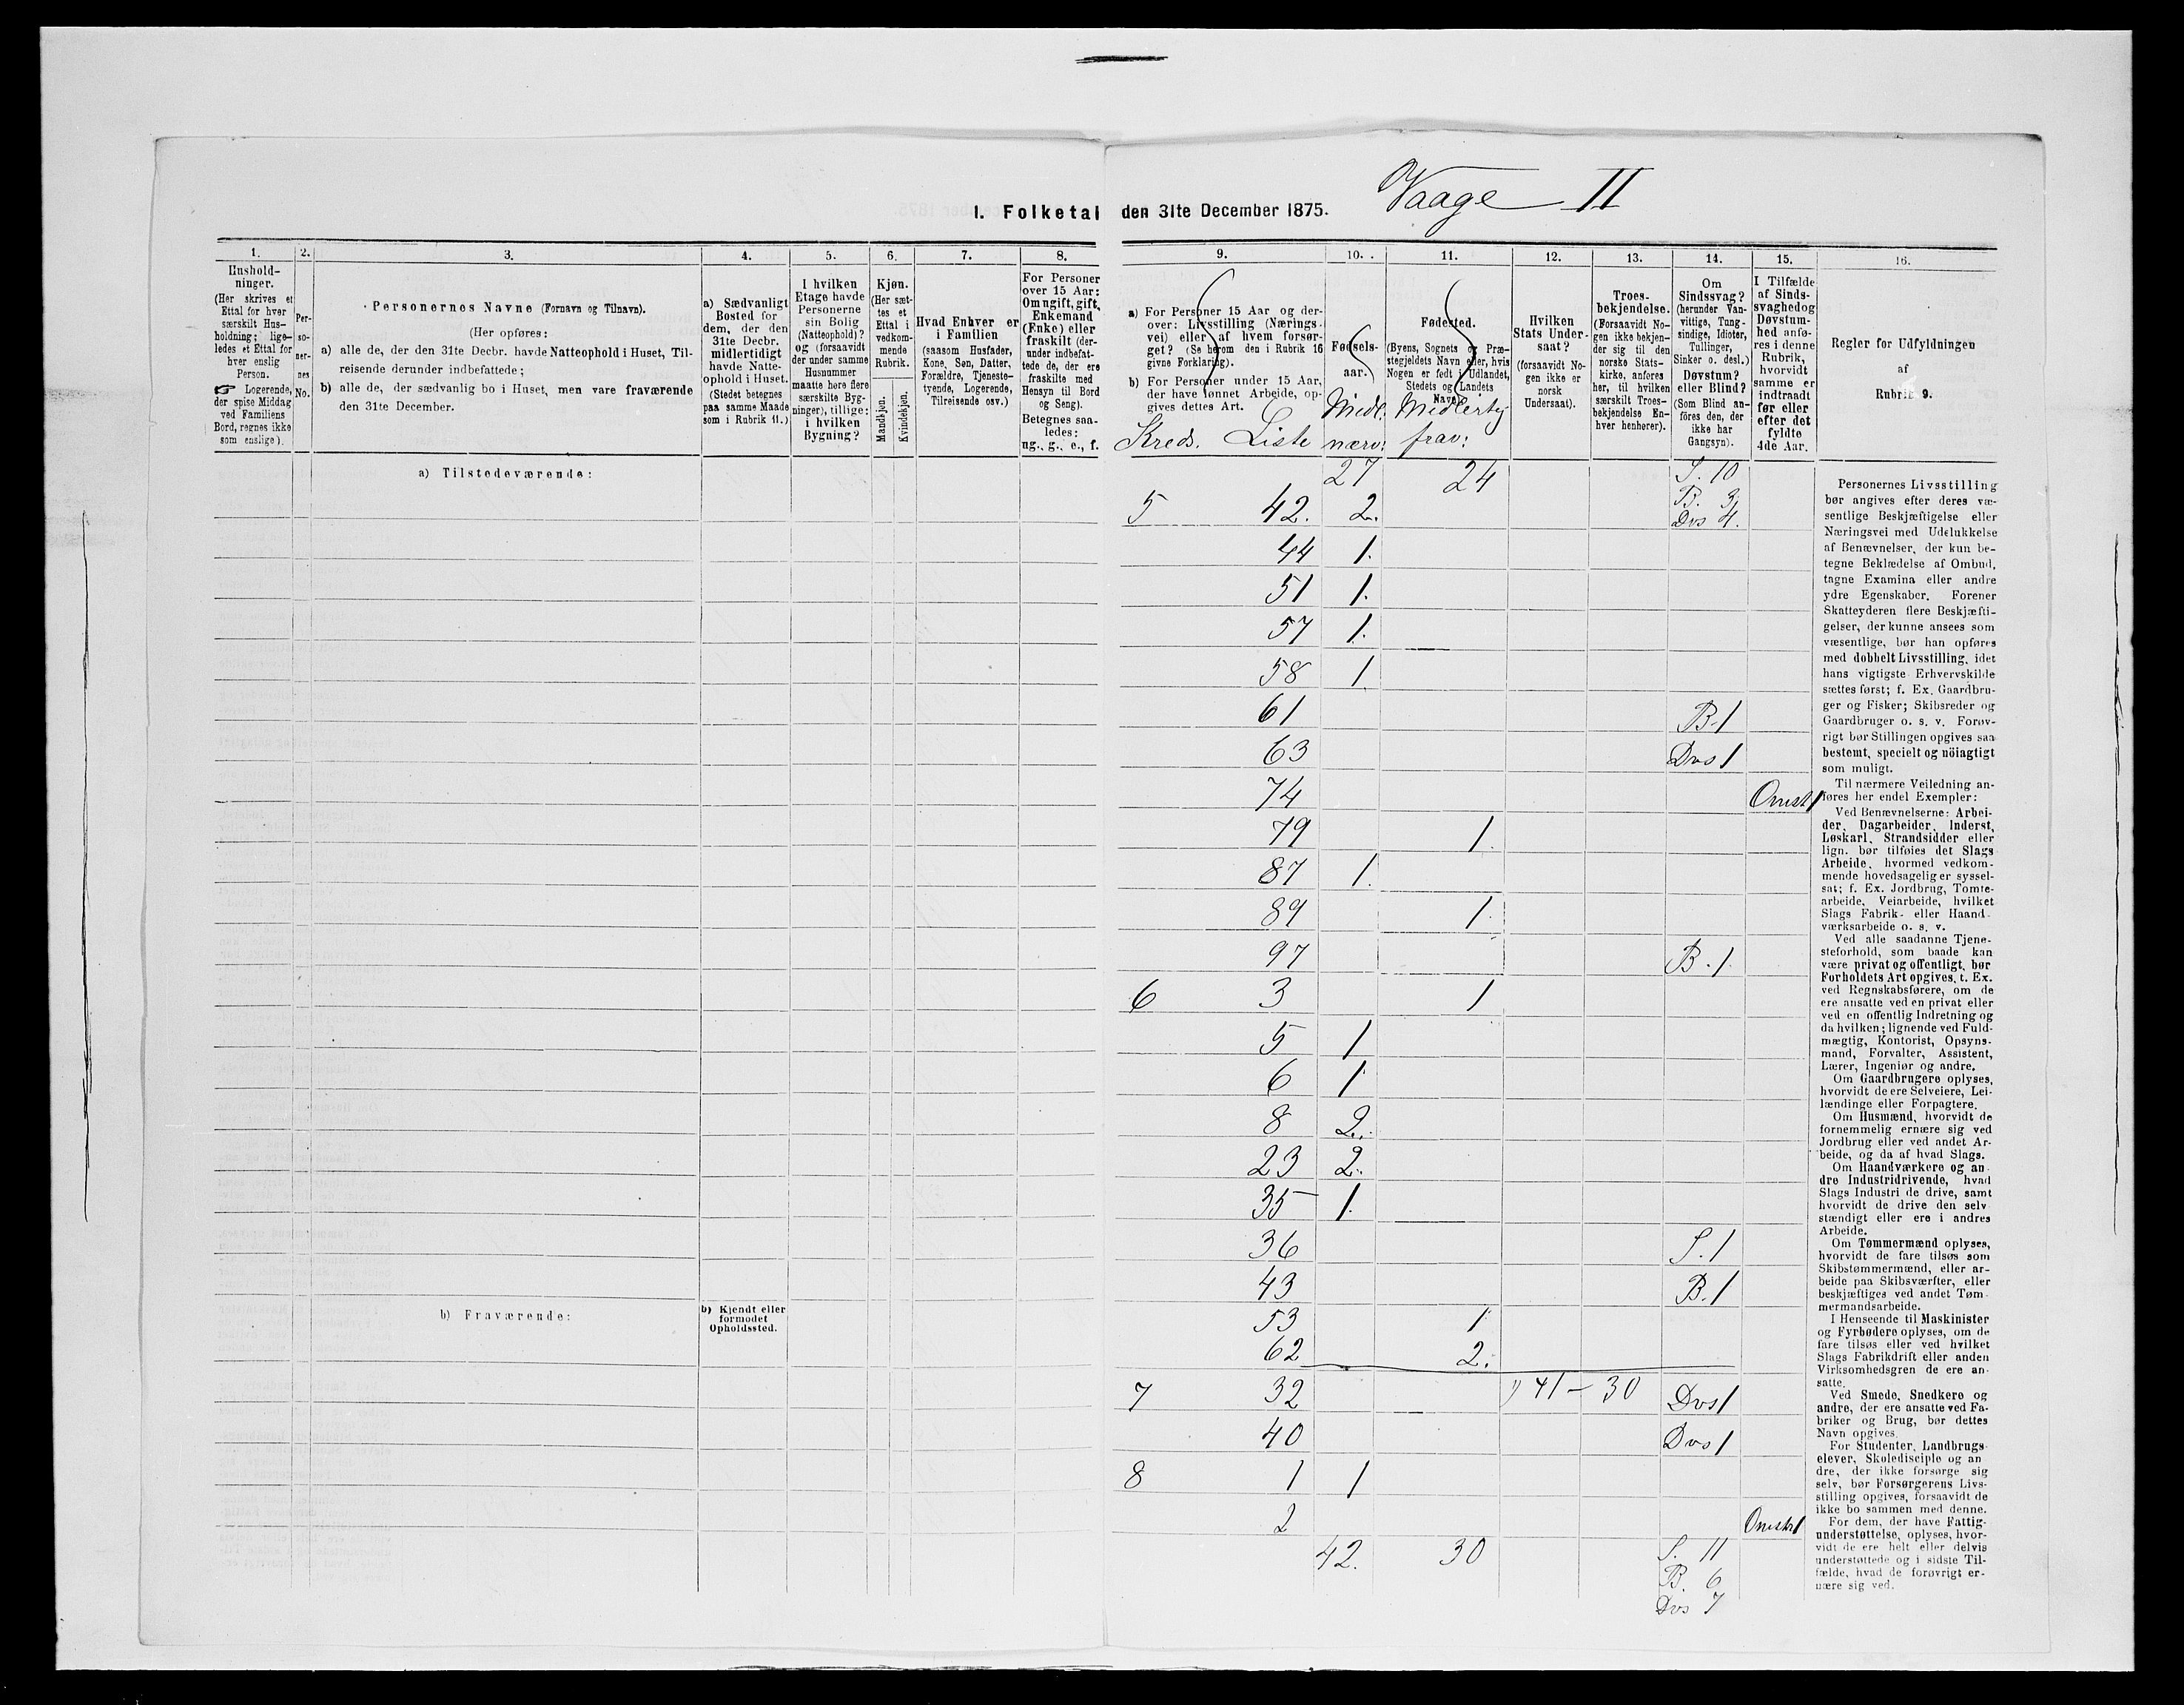 Vaage II
I. Folketal den 31te December 1875.
1.
Hushold-
ninger.
(Her skrives et
Ettal for hver
særskilt Hus-
holdning; lige-
ledes et Ettal for
hver enslig
Person.
☞ Logerende,
der spise Middag
ved Familiens
Bord, regnes ikke
som enslige).
2.
Per-
so-
ner-
nes
No.
3.
Personernes Navne (Fornavn og Tilnavn).
(Her opføres:
a) alle de, der den 31te Decbr. havde Natteophold i Huset, Til-
reisende derunder indbefattede;
b) alle de, der sædvanlig bo i Huset, men vare fraværende
den 31te December.
4.
a) Sædvanligt
Bosted for
dem, der den
31te Decbr.
midlertidigt
havde Natte-
ophold i Huset.
(Stedet betegnes
paa samme Maade
som i Rubrik 11.)
5.
I hvilken
Etage havde
Personerne
sin Bolig
(Natteophold)?
og (forsaavidt
der under samme
Husnummer
maatte høre flere
særskilte Byg-
ninger), tillige:
i hvilken
Bygning?
6.
Kjøn.
(Her sæt-
tes et
Ettal i
vedkom-
mende
Rubrik.
Mandkjøn.
Kvindekjøn.
7.
Hvad Enhver er
i Familien
(saasom Husfader,
Kone, Søn, Datter,
Forældre, Tjeneste-
tyende, Logerende,
Tilreisende osv.)
8.
For Personer
over 15 Aar:
Om ugift, gift,
Enkemand
(Enke) eller
fraskilt (der-
under indbefat-
tede de, der ere
fraskilte med
Hensyn til Bord
og Seng).
Betegnes saa-
ledes:
ug., g., e., f.
9.
a) For Personer 15 Aar og der-
over: Livsstilling (Nærings-
vei) eller af hvem forsør-
get? (Se herom den i Rubrik 16
givne Forklaring).
b) For Personer under 15 Aar,
der have lønnet Arbeide, op-
gives dettes Art.
Kreds. Liste
10.
Fødsels-
aar.
Midl.
nærv:
11.
Fødested.
(Byens, Sognets og Præ-
stegjeldets Navn eller, hvis
Nogen er født i Udlandet,
Stedets og Landets
Navn).
Midlertg
frav:
12.
Hvilken
Stats Under-
saat?
(forsaavidt No-
gen ikke er
norsk
Undersaat).
13.
Troes-
bekjendelse.
(Forsaavidt No-
gen ikke bekjen-
der sig til den
norske Stats-
kirke, anføres
her, til hvilken
særskilt Troes-
bekjendelse En-
hver henhører).
14.
Om
Sindssvag?
(herunder Van-
vittige, Tung-
sindige, Idioter,
Tullinger,
Sinker o. desl.)
Døvstum?
eller Blind?
(Som Blind an-
føres den, der
ikke har
Gangsyn).
15.
I Tilfælde
af Sinds-
svaghed og
Døvstum-
hed anfø-
res i denne
Rubrik,
hvorvidt
samme er
indtraadt
før eller
efter det
fyldte
4de Aar.
16.
Regler for Udfyldningen
af
Rubrik 9.
a) Tilstedeværende:
27 24 S. 10
B. 3
5 42. 2. Dvs 4.
44 1.
51 1.
57 1.
58 1
61 B. 1
63 Dvs 1
74 Omst 1
79 1.
87 1.
89 1.
97 B. 1.
6 3 1
5 1
6 1
8 2.
23 2.
35 1.
36 S. 1
43 B. 1
53 1
62 2.
7 32 41 - 30 Dvs 1
40 Dvs 1
8 1 1
2 Omst 1
42. 30 S. 11
B. 6
Dvs 7
b) Fraværende:
b) Kjendt eller
formodet
Opholdssted.
Personernes Livsstilling
bør angives efter deres væ-
sentlige Beskjæftigelse eller
Næringsvei med Udelukkelse
af Benævnelser, der kun be-
tegne Beklædelse af Ombud,
tagne Examina eller andre
ydre Egenskaber. Forener
Skatteyderen flere Beskjæfti-
gelser, der kunne ansees som
væsentlige, bør han opføres
med dobbelt Livsstilling, idet
hans vigtigste Erhvervskilde
sættes først; f. Ex. Gaardbru-
ger og Fisker; Skibsreder og
Gaardbruger o. s. v. Forøv-
rigt bør Stillingen opgives saa
bestemt, specielt og nöiagtigt
som muligt.
Til nærmere Veiledning an-
føres her endel Exempler:
Ved Benævnelserne: Arbei-
der, Dagarbeider, Inderst,
Løskarl, Strandsidder eller
lign. bør tilføies det Slags
Arbeide, hvormed vedkom-
mende hovedsagelig er syssel-
sat; f. Ex. Jordbrug, Tomte-
arbeide, Veiarbeide, hvilket
Slags Fabrik- eller Haand-
værksarbeide o. s. v.
Ved alle saadanne Tjene-
steforhold, som baade kan
være privat og offentligt, bør
Forholdets Art opgives, t. Ex.
ved Regnskabsførere, om de
ere ansatte ved en privat eller
ved en offentlig Indretning og
da hvilken; lignende ved Fuld-
mægtig, Kontorist, Opsyns-
mand, Forvalter, Assistent,
Lærer, Ingeniør og andre.
Om Gaardbrugere oplyses,
hvorvidt de ere Selveiere, Lei-
lændinge eller Forpagtere.
Om Husmænd, hvorvidt de
fornemmelig ernære sig ved
Jordbrug eller ved andet Ar-
beide, og da af hvad Slags.
Om Haandværkere og an-
dre Industridrivende, hvad
Slags Industri de drive, samt
hvorvidt de drive den selv-
stændigt eller ere i andres
Arbeide.
Om Tømmermænd oplyses,
hvorvidt de fare tilsøs som
Skibstømmermænd, eller ar-
beide paa Skibsværfter, eller
beskjæftiges ved andet Tøm-
mermandsarbeide.
I Henseende til Maskinister
og Fyrbødere oplyses, om de
fare tilsøs eller ved hvilket
Slags Fabrikdrift eller anden
Virksomhedsgren de ere an-
satte.
Ved Smede, Snedkere og
andre, der ere ansatte ved Fa-
briker og Brug, bør dettes
Navn opgives.
For Studenter, Landbrugs-
elever, Skoledisciple og an-
dre, der ikke forsørge sig
selv, bør Forsørgerens Livs-
stilling opgives, forsaavidt de
ikke bo sammen med denne.
For dem, der have Fattig-
understøttelse, oplyses, hvor-
vidt de ere helt eller delvis
understøttede og i sidste Til-
fælde, hvad de forøvrigt er-
nære sig ved.